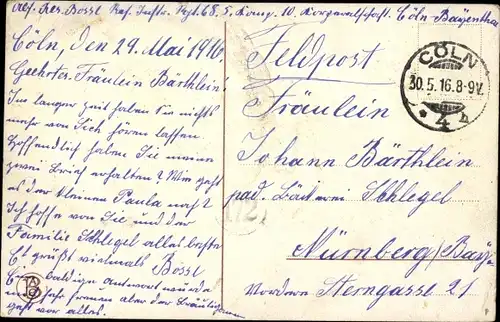 Abs. Res. Bossl Res. Inftr. Rgt. 68, 5. Komp. 10. Korporalschaft. Cöln-Bayenthal
Cöln, den 29. Mai 1916.
Geehrtes Fräulein Bärthlein!
Im langer Zeit haben Sie nichts
mehr von Sich hören lassen.
Hoffendlich haben Sie meine
zwei Brief erhalten? Wie geht
es der kleinen Paula nach?
Ich hoffe von Sie und der
Familie Schlegel alles beste
Es grüßt vielmals Bossl
baldige Antwort würde
mich sehr freuen aber der
geht vor alles.
Feldpost
Fräulein
Johann Bärthlein
pad. Bäckerei Schlegel
Nürnberg/Bay.
Vordere Sterngasse 21
CÖLN
30.5.16.8-9V.
* 4 h